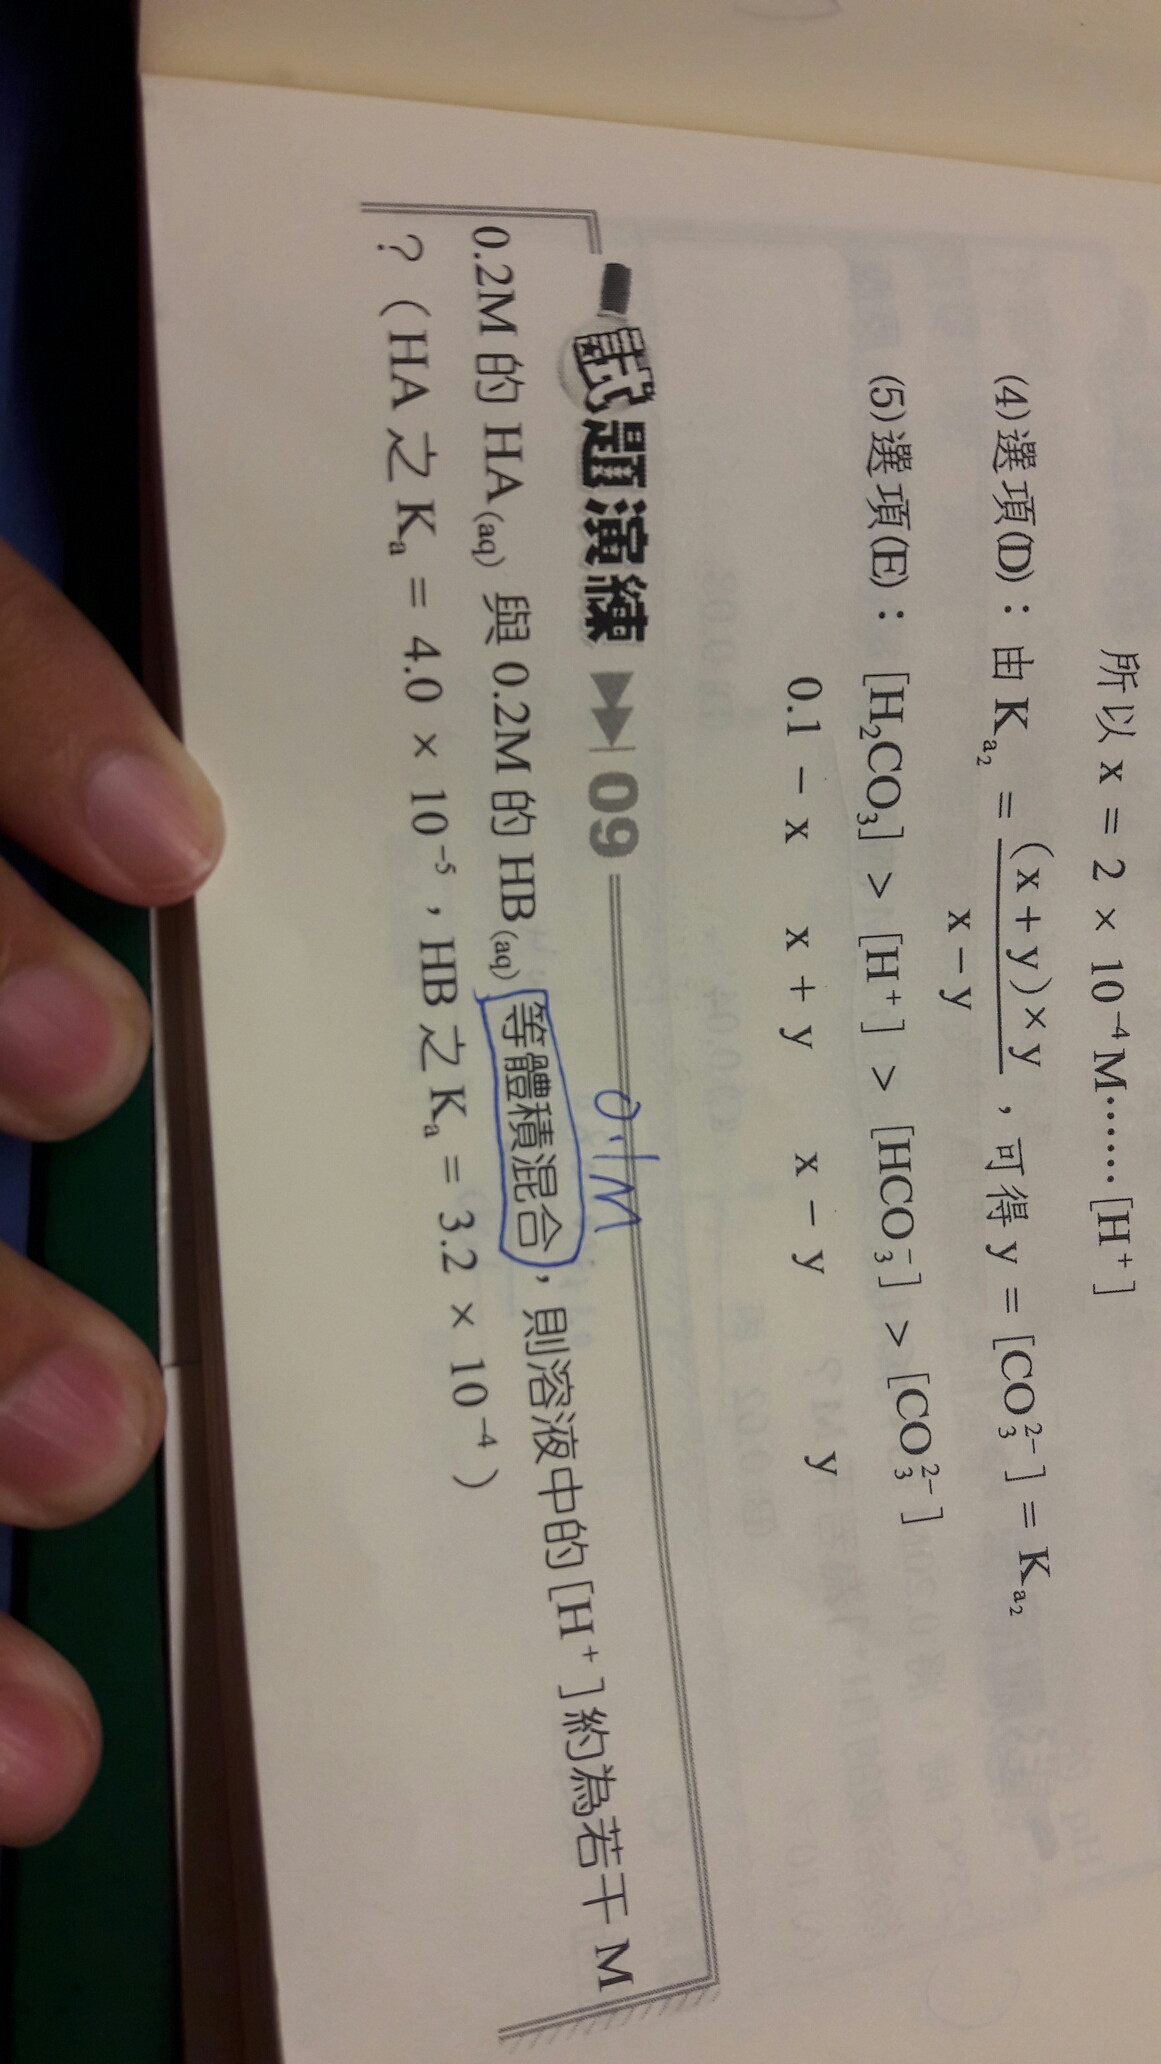 所以 x = 2 × 10⁻⁴ M……[H⁺]
(4)選項(D)：由 Kₐ₂ = (x + y) × y / x − y ，可得 y = [CO₃²⁻] = Kₐ₂
(5)選項(E)：[H₂CO₃] > [H⁺] > [HCO₃⁻] > [CO₃²⁻]
0.1 − x x + y x − y y
試題演練 09
0.1M
0.2M 的 HA(aq) 與 0.2M 的 HB(aq) 等體積混合，則溶液中的 [H⁺] 約為若干 M
？（HA 之 Kₐ = 4.0 × 10⁻⁵，HB 之 Kₐ = 3.2 × 10⁻⁴）